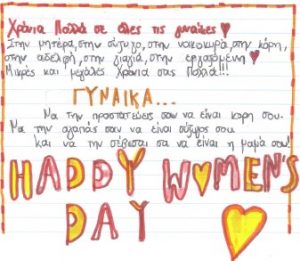 Χρόνια Πολλά σε όλες τις γυναίκες
Στην μητέρα, στην σύζυγο, στην νοικοκυρά, στην κόρη,
στην αδελφή, στην γιαγιά, στην εργαζομένη
Μικρές και μεγάλες Χρόνια σας Πολλά!!!
ΓΥΝΑΙΚΑ...
Να την προστατεύεις σαν να είναι κόρη σου.
Να την αγαπάς σαν να είναι σύζυγος σου
και να την σέβεσαι σα να είναι η μαμά σου!
HADDY WOMEN'S
DAY